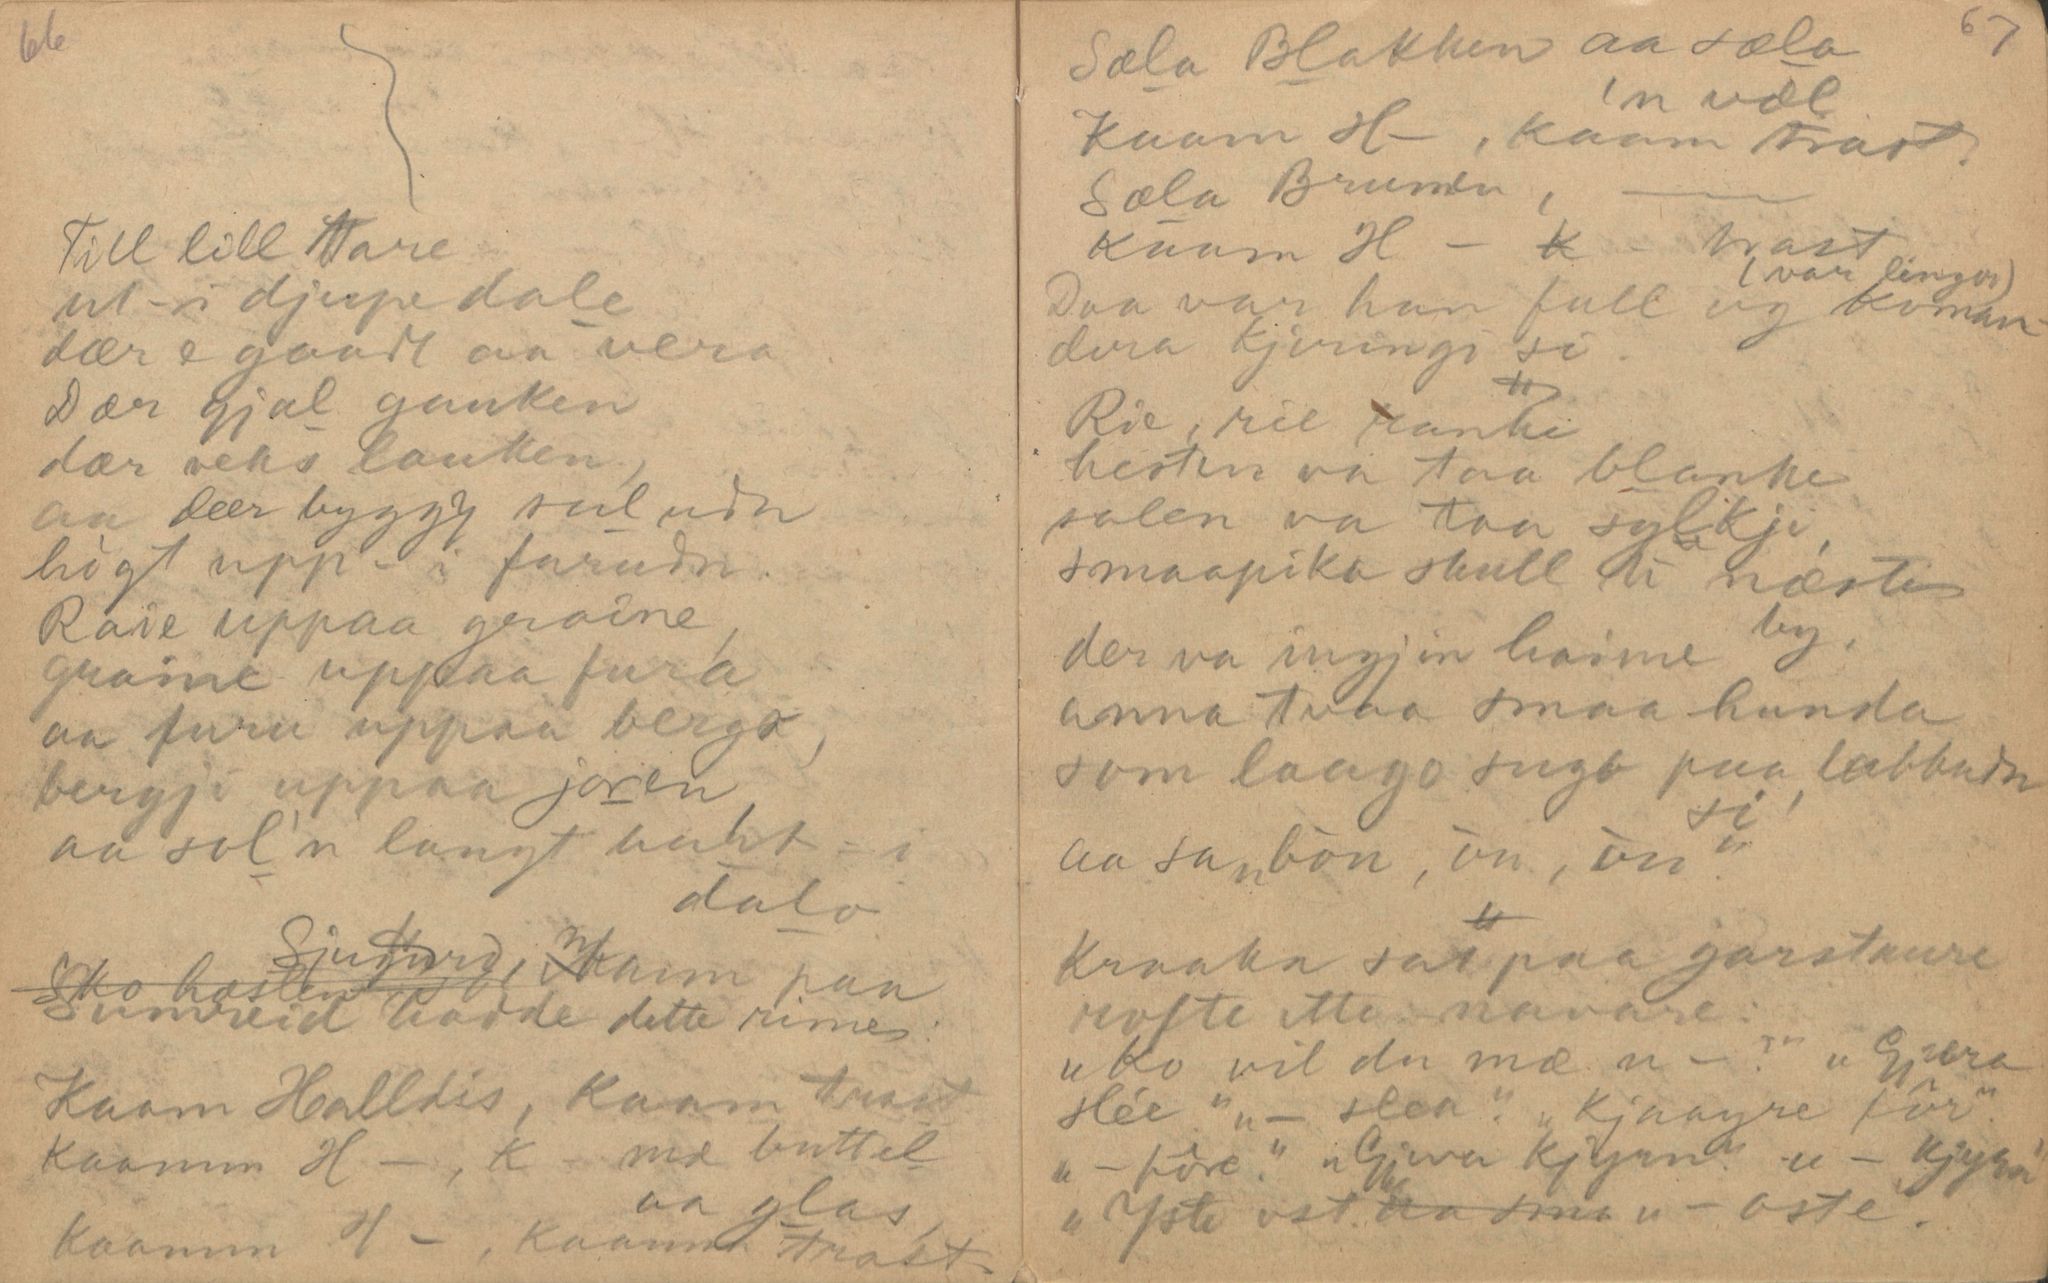 66
Till lill Tare
ut-i djupedale
dær e goadt aa vera
Dær gjal gauken
dær veks lauken,
aa dær byggjy suludn
högt upp-i furudn.
Raie uppaa graine,
graine uppaa fura
aa furu uppaa berge,
bergji uppaa joren,
aa sol'n langt i
dalo
Sjugurd, paa
Sumreid hadde dette rime:
Kaam Halldis, Kaam trast
Kaamm H – , K – mæ buttel
aa glas,
Kaamm H – , Kaamm trast
67
Sæla Blakken aa sæla
'n væl
Kaam H – , Kaam trast.
Sæla Brunen, —
Kaam H – K – trast
(var lingor)
Daa var han full og koman-
dera kjeringi si.
Rie, rie ranke
hesten va taa blanke
salen va taa sylkji,
smaapika skull di næste
by,
der va ingjin haime
anna tvaa smaa hunda
som laago sugo paa labbudn
si
aa sa „bön, ön, ön"
Kraaka sat paa garstaure
rofte ette navare:
„Ko vil du mæ n – ?" „Gjera
slée" „ – slea". „Kjaayre för".
„ – före." „Gjera Kjyrn" „ –
„Yste ost. „ – oste".